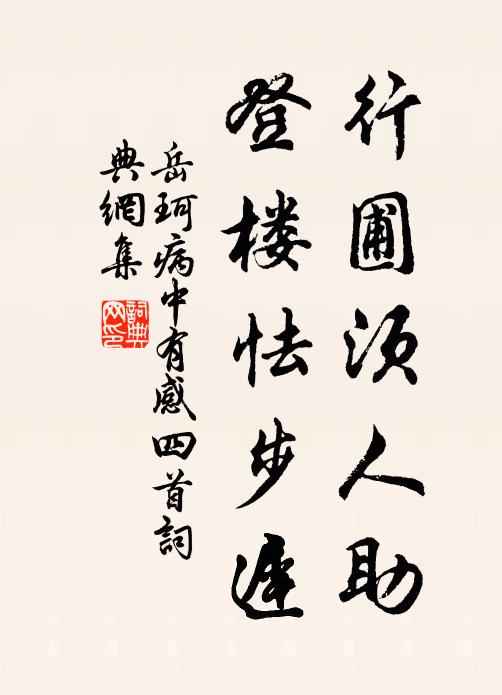 行圃须人助
登楼怯步遲
岳珂病中有感四首詞
典網集
詞典
网印